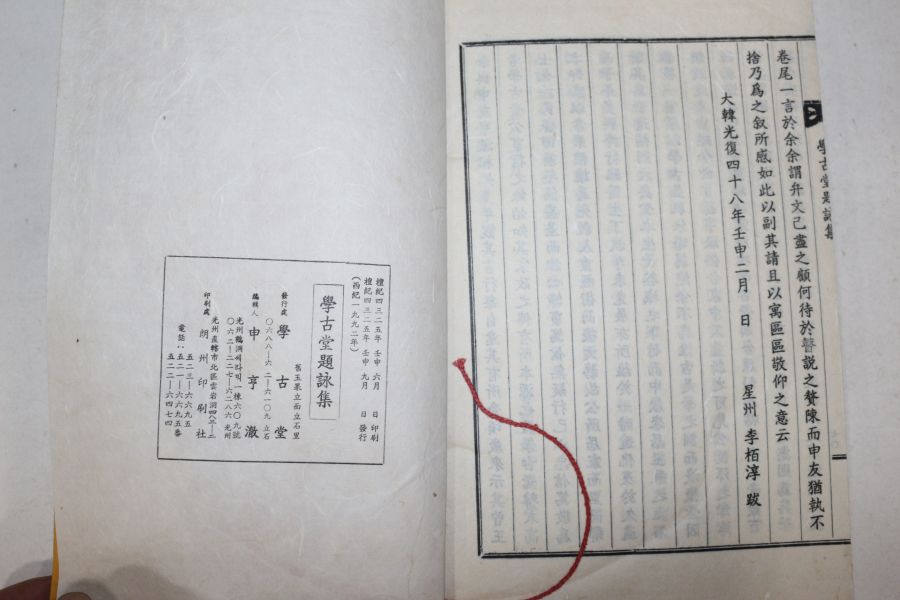 學古堂題詠集
卷尾一言於余余謂弁文已盡之顧何待於瞽説之贅陳而申友猶執不
捨乃爲之叙所感如此以副其請且以寓區區敬仰之意云
大韓光復四十八年壬申二月　日　星州 李栢淳 跋
檀紀四三二五年 壬申 六月　日 印刷
檀紀四三二五年 壬申 九月　日 發行
（西紀一九九二年）
學古堂題詠集
舊玉果立面立石里
發行處 學古堂
〇六八八－六二－六一〇九 立石
編輯人 申亨澈
光州 一棟六〇九號
〇六二－二二七－六二八六 光州
光州直轄市北區雲岩洞
印刷處 朗州印刷社
電話：五二三－六六九五
五二一－六六九五番
五二二－六四七四